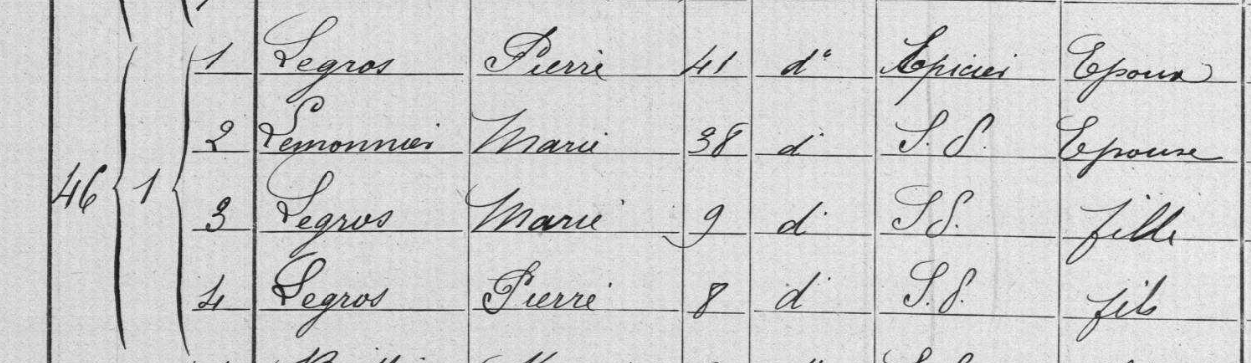 46 1 1 Legros Pierre 41 d° Epicier Epoux
2 Lemonnier Marie 38 d° S. P. Epouse
3 Legros Marie 9 d° S P. fille
4 Legros Pierre 8 d° S. P. fils